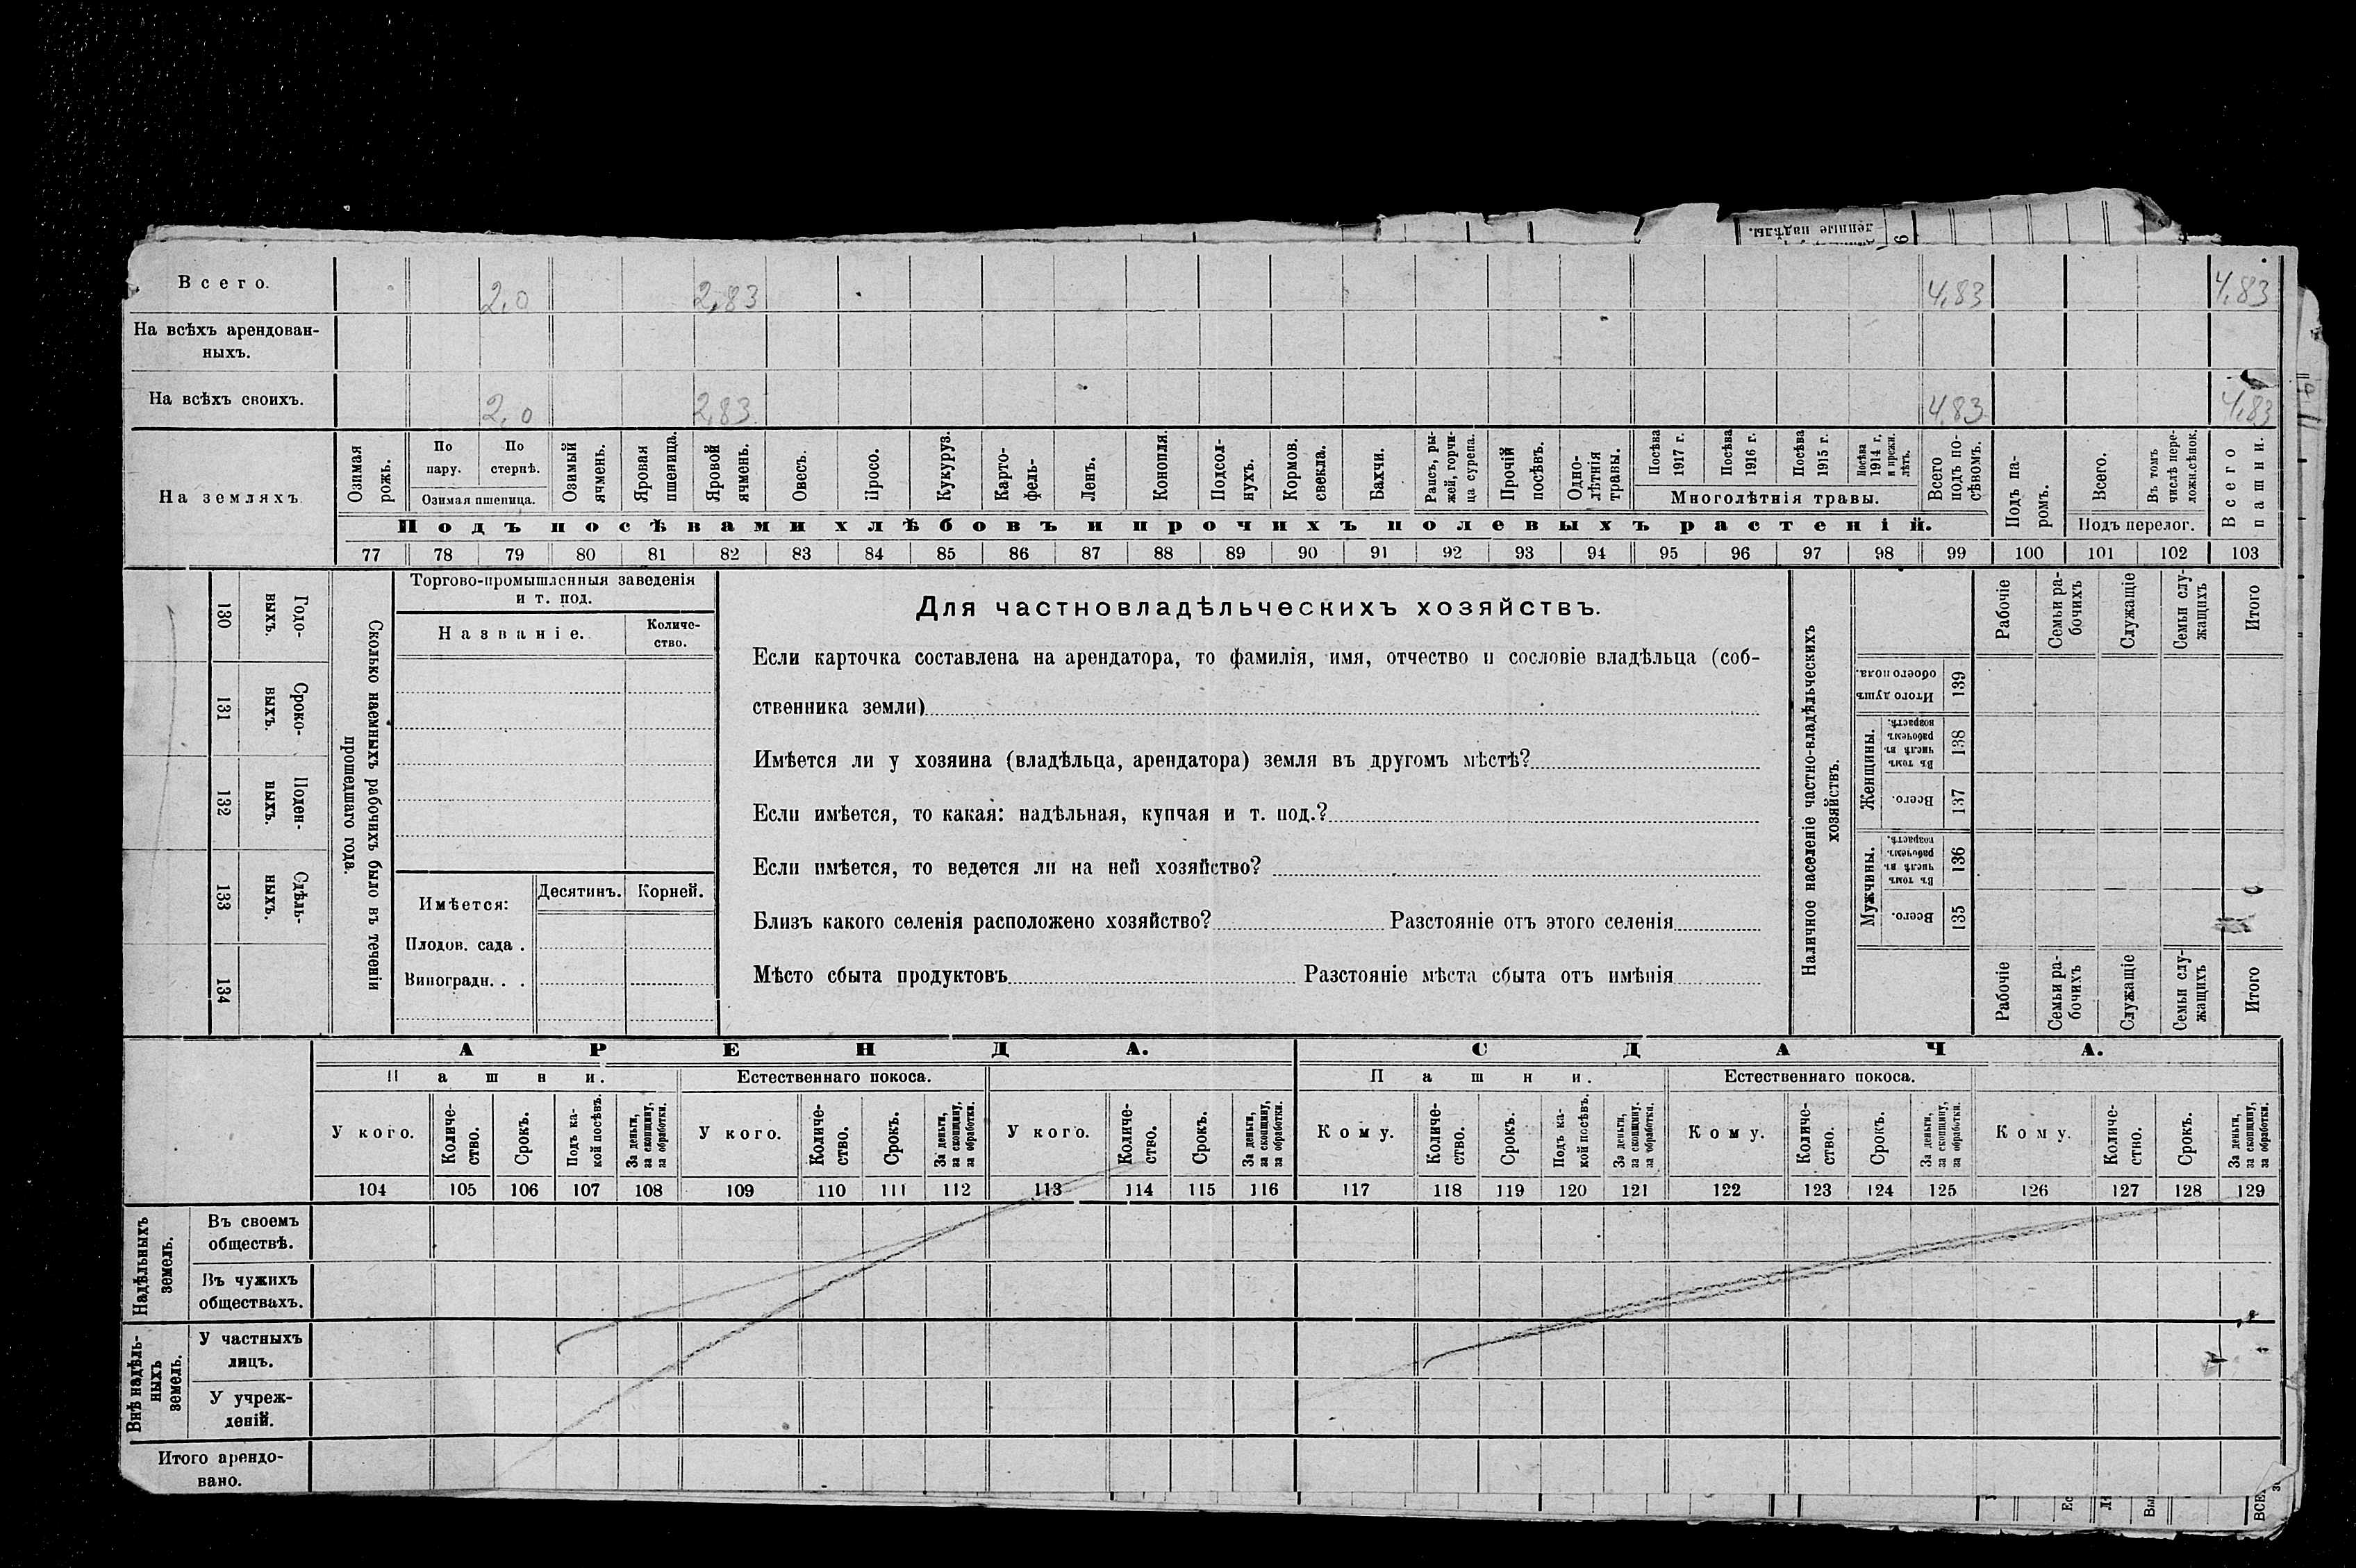 ленные надѣлы.
Всего. 2,0 2,83 4,83 4,83
На всѣхъ арендован-
ныхъ.
На всѣхъ своихъ. 2,0 2,83 4,83 4,83
На земляхъ
Озимая рожь.
По пару.
По стернѣ.
Озимая пшеница.
Озимый ячмень.
Яровая пшеница.
Яровой ячмень.
Овесъ.
Просо.
Кукуруз.
Карто-
фель-
Ленъ.
Конопля.
Подсол-
нухъ.
Кормов.
свекла.
Бахчи.
Рапсъ, ры-
жей, горчи-
ца сурепа.
Прочій
посѣвъ.
Одно-
лѣтнія
травы.
Посѣва
1917 г.
Посѣва
1916 г.
Посѣва
1915 г.
Посѣва
1914 г.
и прежн.
лѣтъ.
Многолѣтнія травы.
Всего
подъ по-
сѣвомъ.
Подъ па-
ромъ.
Всего.
Въ томъ
числѣ пере-
ложн.сѣнок.
Подъ перелог.
Всего
пашни.
Подъ посѣвами хлѣбовъ и прочихъ полевыхъ растеній.
77 78 79 80 81 82 83 84 85 86 87 88 89 90 91 92 93 94 95 96 97 98 99 100 101 102 103
130
Годо-
выхъ.
131
Сроко-
выхъ.
132
Поден-
ныхъ.
133
Сдѣль-
ныхъ.
134
Сколько наемныхъ рабочихъ было въ теченіи
прошедшаго года.
Торгово-промышленныя заведенія
и т. под.
Названіе.
Количе-
ство.
Имѣется:
Десятинъ. Корней.
Плодов. сада .
Виноградн. . .
Для частновладѣльческихъ хозяйствъ.
Если карточка составлена на арендатора, то фамилія, имя, отчество и сословіе владѣльца (соб-
ственника земли)
Имѣется ли у хозяина (владѣльца, арендатора) земля въ другомъ мѣстѣ?
Если имѣется, то какая: надѣльная, купчая и т. под.?
Если имѣется, то ведется ли на ней хозяйство?
Близъ какого селенія расположено хозяйство? Разстояніе отъ этого селенія
Мѣсто сбыта продуктовъ Разстояніе мѣста сбыта отъ имѣнія
Наличное населеніе частно-владѣльческихъ
хозяйствъ.
Рабочіе
Семьи ра-
бочихъ
Служащіе
Семьи слу-
жащихъ
Итого
Итого душъ
обоего пола.
139
Женщины.
Въ томъ
числѣ въ
рабочемъ
возрастѣ.
138
Всего.
137
Мужчины.
Въ томъ
числѣ въ
рабочемъ
возрастѣ.
136
Всего.
135
Рабочіе
Семьи ра-
бочихъ
Служащіе
Семьи слу-
жащихъ
Итого
АРЕНДА. СДАЧА.
Пашни. Естественнаго покоса. Пашни. Естественнаго покоса.
У кого.
Количе-
ство.
Срокъ.
Подъ ка-
кой посѣвъ.
За деньги,
за скопщину,
за обработки.
У кого.
Количе-
ство.
Срокъ.
За деньги,
за скопщину,
за обработки.
У кого.
Количе-
ство.
Срокъ.
За деньги,
за скопщину,
за обработки.
Кому.
Количе-
ство.
Срокъ.
Подъ ка-
кой посѣвъ.
За деньги,
за скопщину,
за обработки.
Кому.
Количе-
ство.
Срокъ.
За деньги,
за скопщину,
за обработки.
Кому.
Количе-
ство.
Срокъ.
За деньги,
за скопщину,
за обработки.
104 105 106 107 108 109 110 111 112 113 114 115 116 117 118 119 120 121 122 123 124 125 126 127 128 129
Надѣльныхъ
земель.
Въ своемъ
обществѣ.
Въ чужихъ
обществахъ.
Внѣ надѣль-
ныхъ
земель.
У частныхъ
лицъ.
У учреж-
деній.
Итого арендо-
вано.